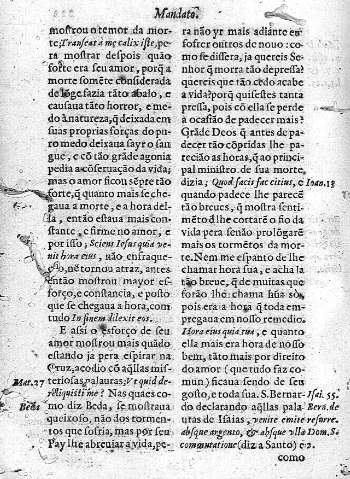 Mandato.
mostrou o temor da mor-
te, Transeat à me calix iste, pe-
ra mostrar despois quão
forte era seu amor, porq̃ a
morte somẽte considerada
de lõge fazia tãto abalo, e
causaua tãto horror, e me-
do à natureza, q̃ deixada em
suas proprias forças do pu-
ro medo deixaua sayr o san
gue, e cõ tão grãde agonia
pedia a cõseruação da vida;
mas o amor ficou sẽpre tão
forte, q̃ quanto mais se che-
gaua a morte, e a hora del-
la, então estaua mais cons-
tante, e firme no amor, e
por isso, Sciens Iesus quia ve-
nit hora eius, não enfraque-
ceo, nẽ tornou atraz, antes
então mostrou mayor es-
forço, e constancia, e posto
que se chegaua a hora, com
tudo In finem dilexit eos.
E assi o esforço de seu
amor mostrou mais quãdo
estando ja pera espirar na
Cruz, acodio cõ aq̃llas mis-
teriosas palauras; Vt quid de-
reliquisti me? Nas quaes co-
mo diz Beda, se mostraua
queixoso, não dos tormen-
tos que sofria, mas por seu
Pay lhe abreuiar a vida, pe-
Mat. 27
Beda
ra não yr mais adiante em
sofrer outros de nouo: co-
mo se dissera, ja quereis Se-
nhor q̃ morra tão depressa?
quereis que tão cedo acabe
a vida? porq̃ quisestes tanta
pressa, pois cõ ella se perde
a ocasião de padecer mais?
Grãde Deos q̃ antes de pa-
decer tão cõpridas lhe pa-
recião as horas, q̃ ao princi-
pal ministro de sua morte,
dizia; Quod facis fac citius, e
quando padece lhe parecẽ
tão breues, q̃ mostra senti-
mẽto d̃ lhe cortarẽ o fio da
vida pera senão prolõgarẽ
mais os tormẽtos da mor-
te. Nem me espanto de lhe
chamar hora sua, e acha la
tão breue, q̃ de muitas que
forão lhe chama hũa só,
pois era a hora q̃ toda em-
pregaua em nosso remedio.
Hora eius quia sua, e quanto
ella mais era hora de nosso
bem, tãto mais por direito
do amor (que tudo faz co-
mun) ficaua sendo de seu
gosto, e toda sua. S. Bernar-
do declarando aq̃llas pala
uras de Isaias, venite emite
absque argento, & absque vlla
commutatione (diz a Santo) e
como
Ioan. 13
Isai. 55.
Bern. de
Dom. S.